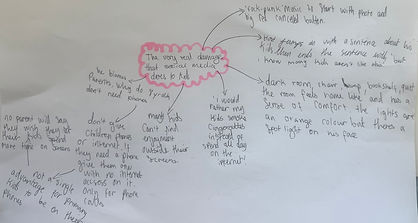 rock-punk music to start with photo and
big red cancelled button.
The very real damage
that social media
does to kids
starts with a sentence about his
kids then ends the sentence with but
I know many kids are
dark room, chair lamp bookshelf, paint
the room feels home like and has a
sort of comfort the lights are
an orange colour but theres a
spot light on his face
he blames
Parents. Why do
don't need phones
I would
rather my
kids smoke
Cigarettes
instead of
spend all day
on the
internet
many kids
Cant find
enjoyment
outside their
screens
don't give
Children phones
or internet if
they need a phone
give them one
with no internet
access on it
only for phone
calls
no parent will say
they wish they let
their kids spend
more time on screens
not a single
advantage for
kids to be on their
phones